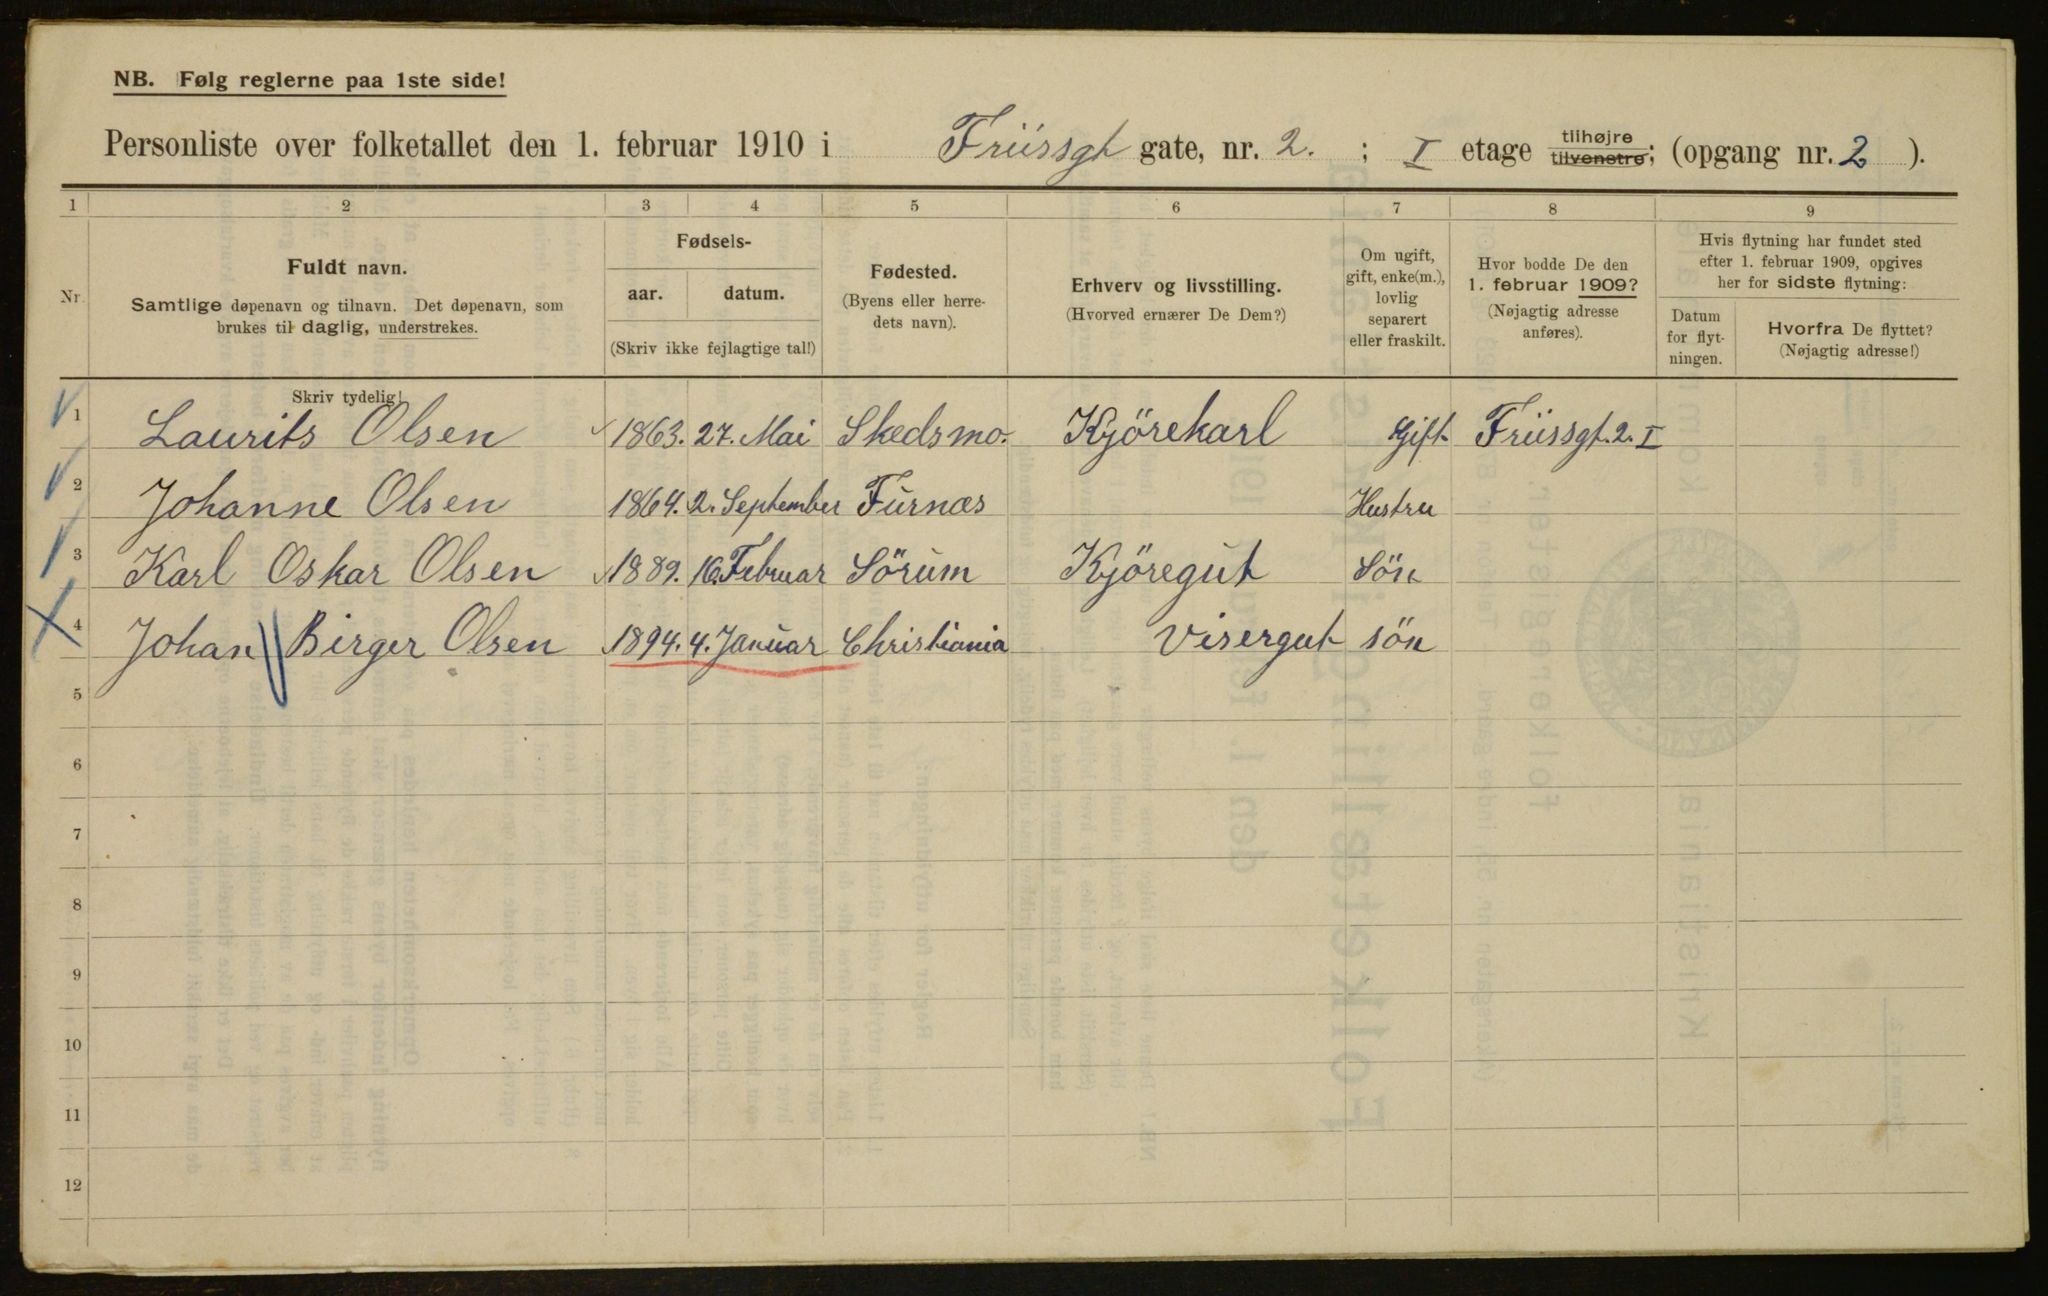 NB. Følg reglerne paa 1ste side!
Personliste over folketallet den 1. februar 1910 i Friisgt gate, nr. 2. ; I etage tilhøjre tilvenstre; (opgang nr. 2 ).
1 2 3 4 5 6 7 8 9
Nr.
Fuldt navn.
Samtlige døpenavn og tilnavn. Det døpenavn, som
brukes til daglig, understrekes.
Skriv tydelig!
Fødsels-
aar. datum.
(Skriv ikke fejlagtige tal!)
Fødested.
(Byens eller herre-
dets navn).
Erhverv og livsstilling.
(Hvorved ernærer De Dem?)
Om ugift,
gift, enke(m.),
lovlig
separert
eller fraskilt.
Hvor bodde De den
1. februar 1909?
(Nøjagtig adresse
anføres).
Hvis flytning har fundet sted
efter 1. februar 1909, opgives
her for sidste flytning:
Datum
for flyt-
ningen.
Hvorfra De flyttet?
(Nøjagtig adresse!)
1 Laurits Olsen 1863. 27. Mai Skedsmo. Kjörekarl Gift Friisgt. 2. I
2 Johanne Olsen 1864. 2. September Furnæs Hustru
3 Karl Oskar Olsen 1889. 16. Februar Sörum Kjöregut Sön
4 Johan Birger Olsen 1894. 4. Januar Christiania Visergut sön
5
6
7
8
9
10
11
12